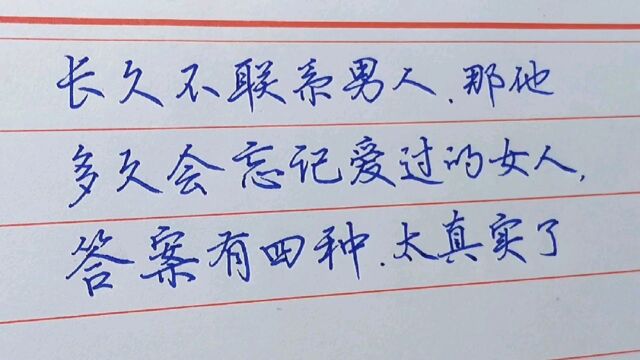 长久不联系男人，那他
多久会忘记爱过的女人，
答案有四种，太真实了